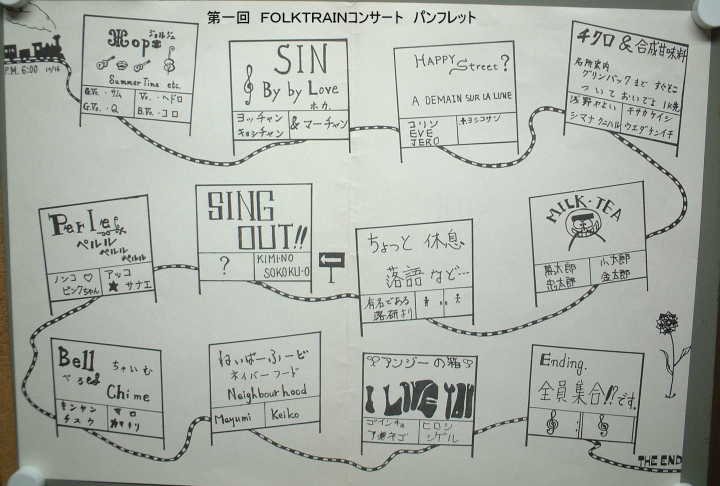 第一回 FOLKTRAINコンサート パンフレット
P.M. 6:00
Hopi
ジョルジュ
Summer Time etc.
G.Vo.・サム
Vo.・ヘドロ
G.Vo.・Q
B.Vo.・コロ
SIN
By by Love
ホカ.
ヨッチャン
キヨシチャン
&マーチャン
HAPPY
Street?
A DEMAIN SUR LA LUNE
コリン
EVE
JERO
キヨシコサン
チクロ & 合成甘味料
名所案内
グリンバックまで すぐとこ
ついておいでよ
浅野やよい
シマナクニハル
キサカケイシ
ウエダケンイチ
PerLe
ペルル
ペルル
ペルル
ノンコ♡
ピンクちゃん
アッコ
★サナエ
SING
OUT!!
?
KIMI-NO
SOKOKU-O
ちょっと 休息
落語など…
有名である
落研より
MILK・TEA
忠太郎
小太郎
金太郎
Bell ちゃいむ
べる Chime
モンヤン
チスウ
マロ
ねいばーふーど
ネイバーフード
Neighbourhood
Mayumi
Keiko
アンジーの箱
I LOVE YOU
ヒロシ
シゲル
Ending.
全員集合!?です。
THE END